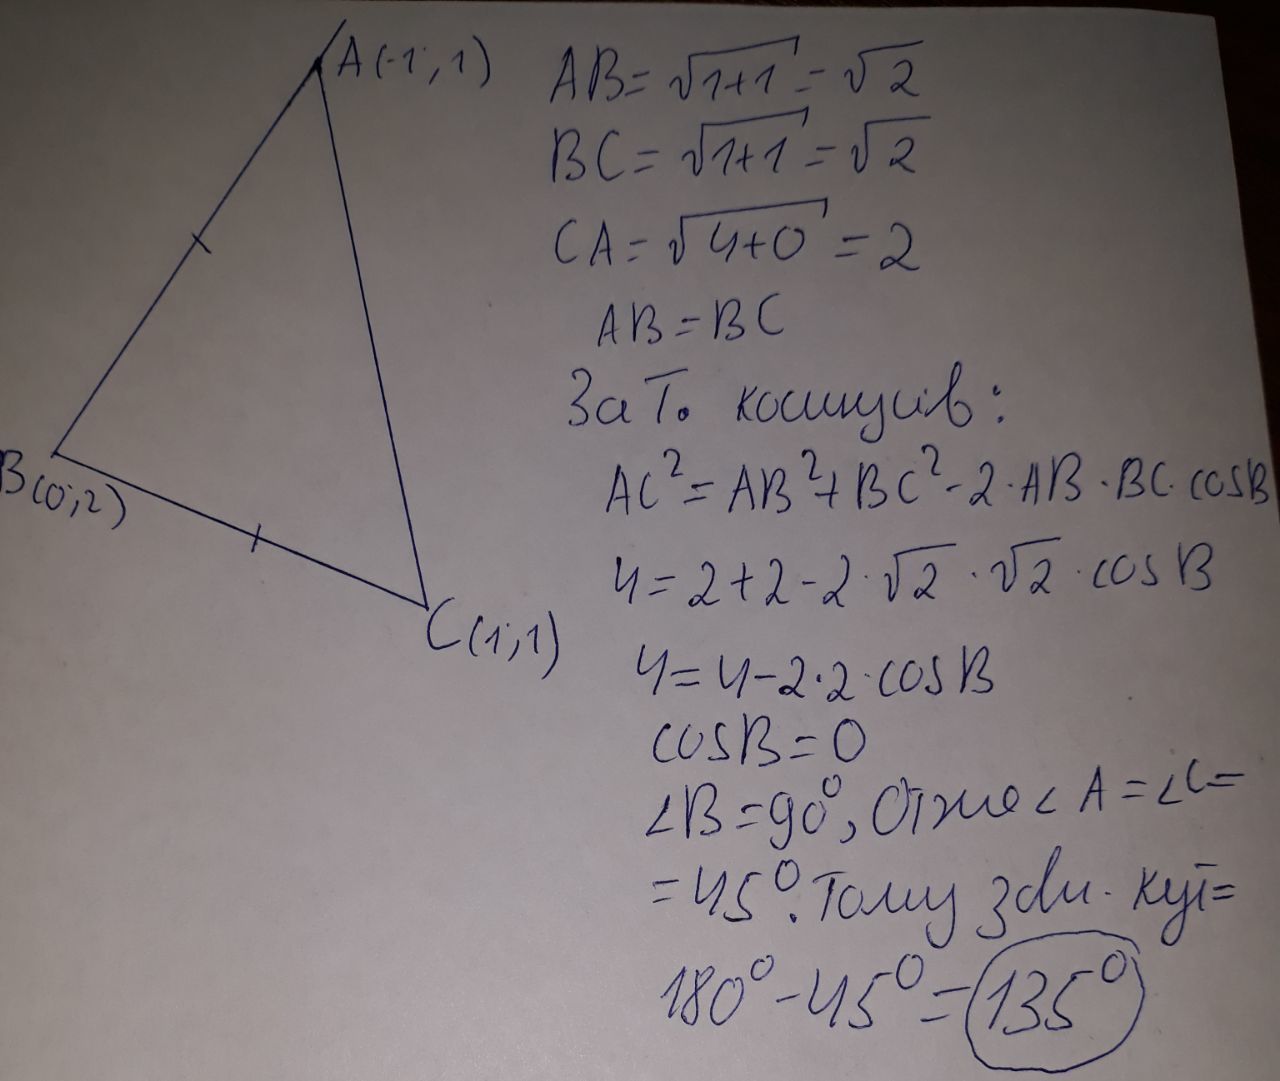 A(-1;1)
B(0;2)
C(1;1)
AB=√1+1=√2
BC=√1+1=√2
CA=√4+0=2
AB=BC
За Т. косинусів:
AC²=AB²+BC²-2·AB·BC·cosB
4=2+2-2·√2·√2·cosB
4=4-2·2·cosB
cosB=0
∠B=90°, Отже ∠A=∠C=
=45°. Тому зовн. кут=
180°-45°=135°